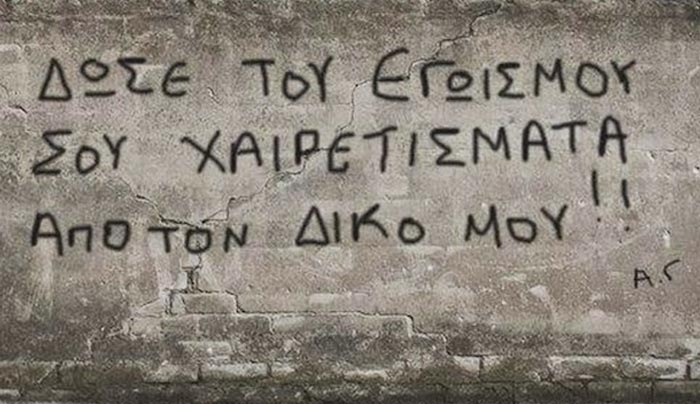 ΔΩΣΕ ΤΟΥ ΕΓΩΙΣΜΟΥ
ΣΟΥ ΧΑΙΡΕΤΙΣΜΑΤΑ
ΑΠΟ ΤΟΝ ΔΙΚΟ ΜΟΥ!!
Α.Γ